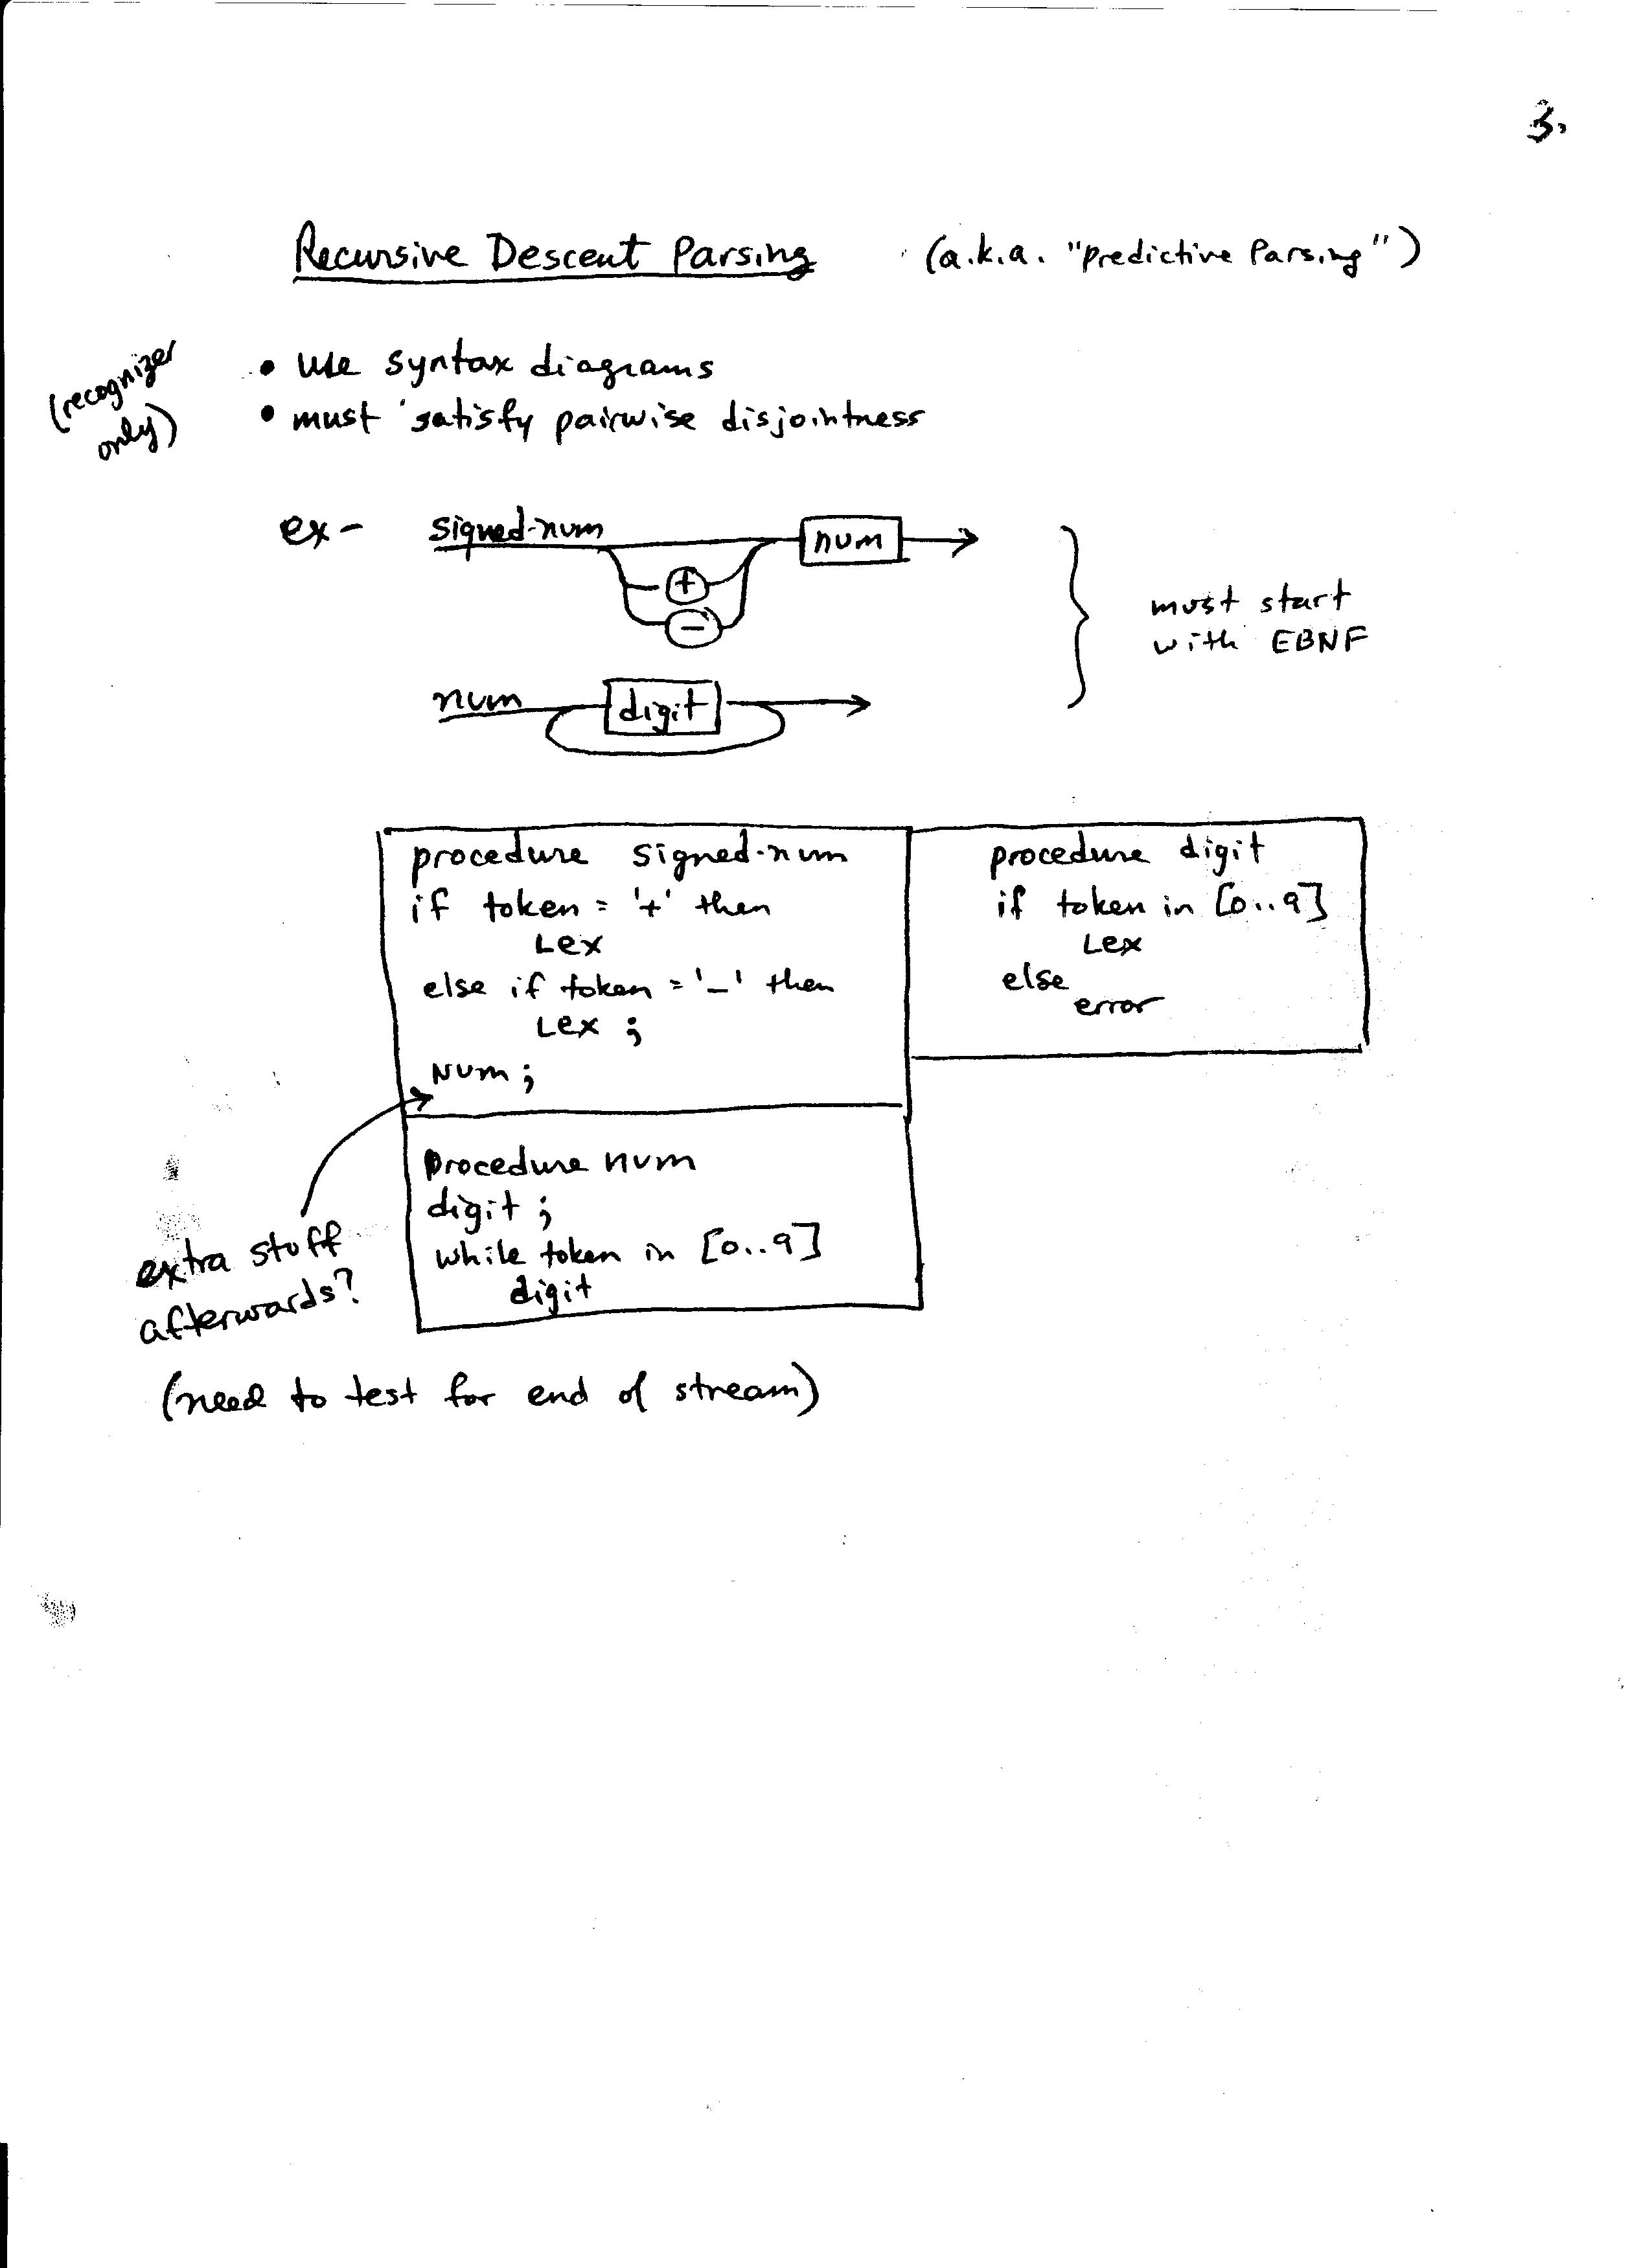 3.
Recursive Descent Parsing (a.k.a. "Predictive Parsing")
(recognizer
only)
• use syntax diagrams
• must satisfy pairwise disjointness
ex- signed-num num
+
-
must start
with EBNF
num digit
procedure signed-num
if token = '+' then
Lex
else if token = '-' then
Lex ;
Num ;
procedure digit
if token in [0..9]
Lex
else
error
Procedure num
digit ;
while token in [0..9]
digit
extra stuff
afterwards?
(need to test for end of stream)